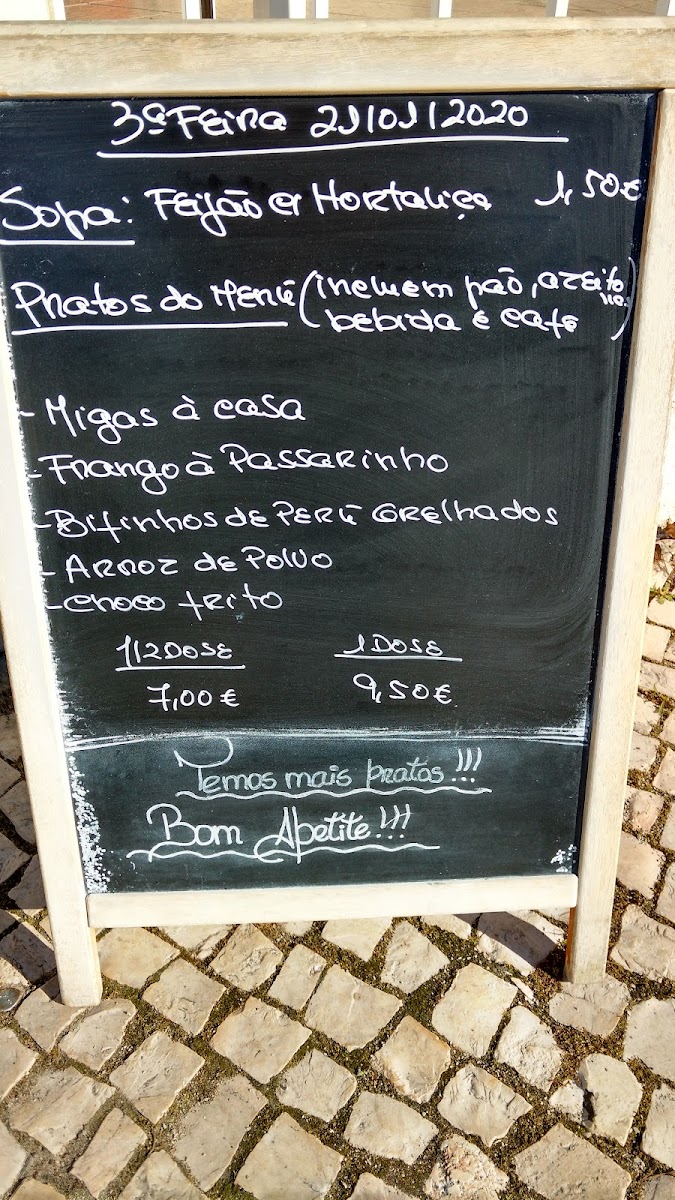 3ª Feira 21/01/2020
Sopa: Feijão c/ Hortaliça 1,50€
Pratos do Menú (incluem pão, azeitonas,
bebida e café)
- Migas à casa
- Frango à Passarinho
- Bifinhos de Perú Grelhados
- Arroz de Polvo
- Choco frito
1/2 Dose 1 Dose
7,00€ 9,50€
Temos mais pratos!!!
Bom Apetite!!!